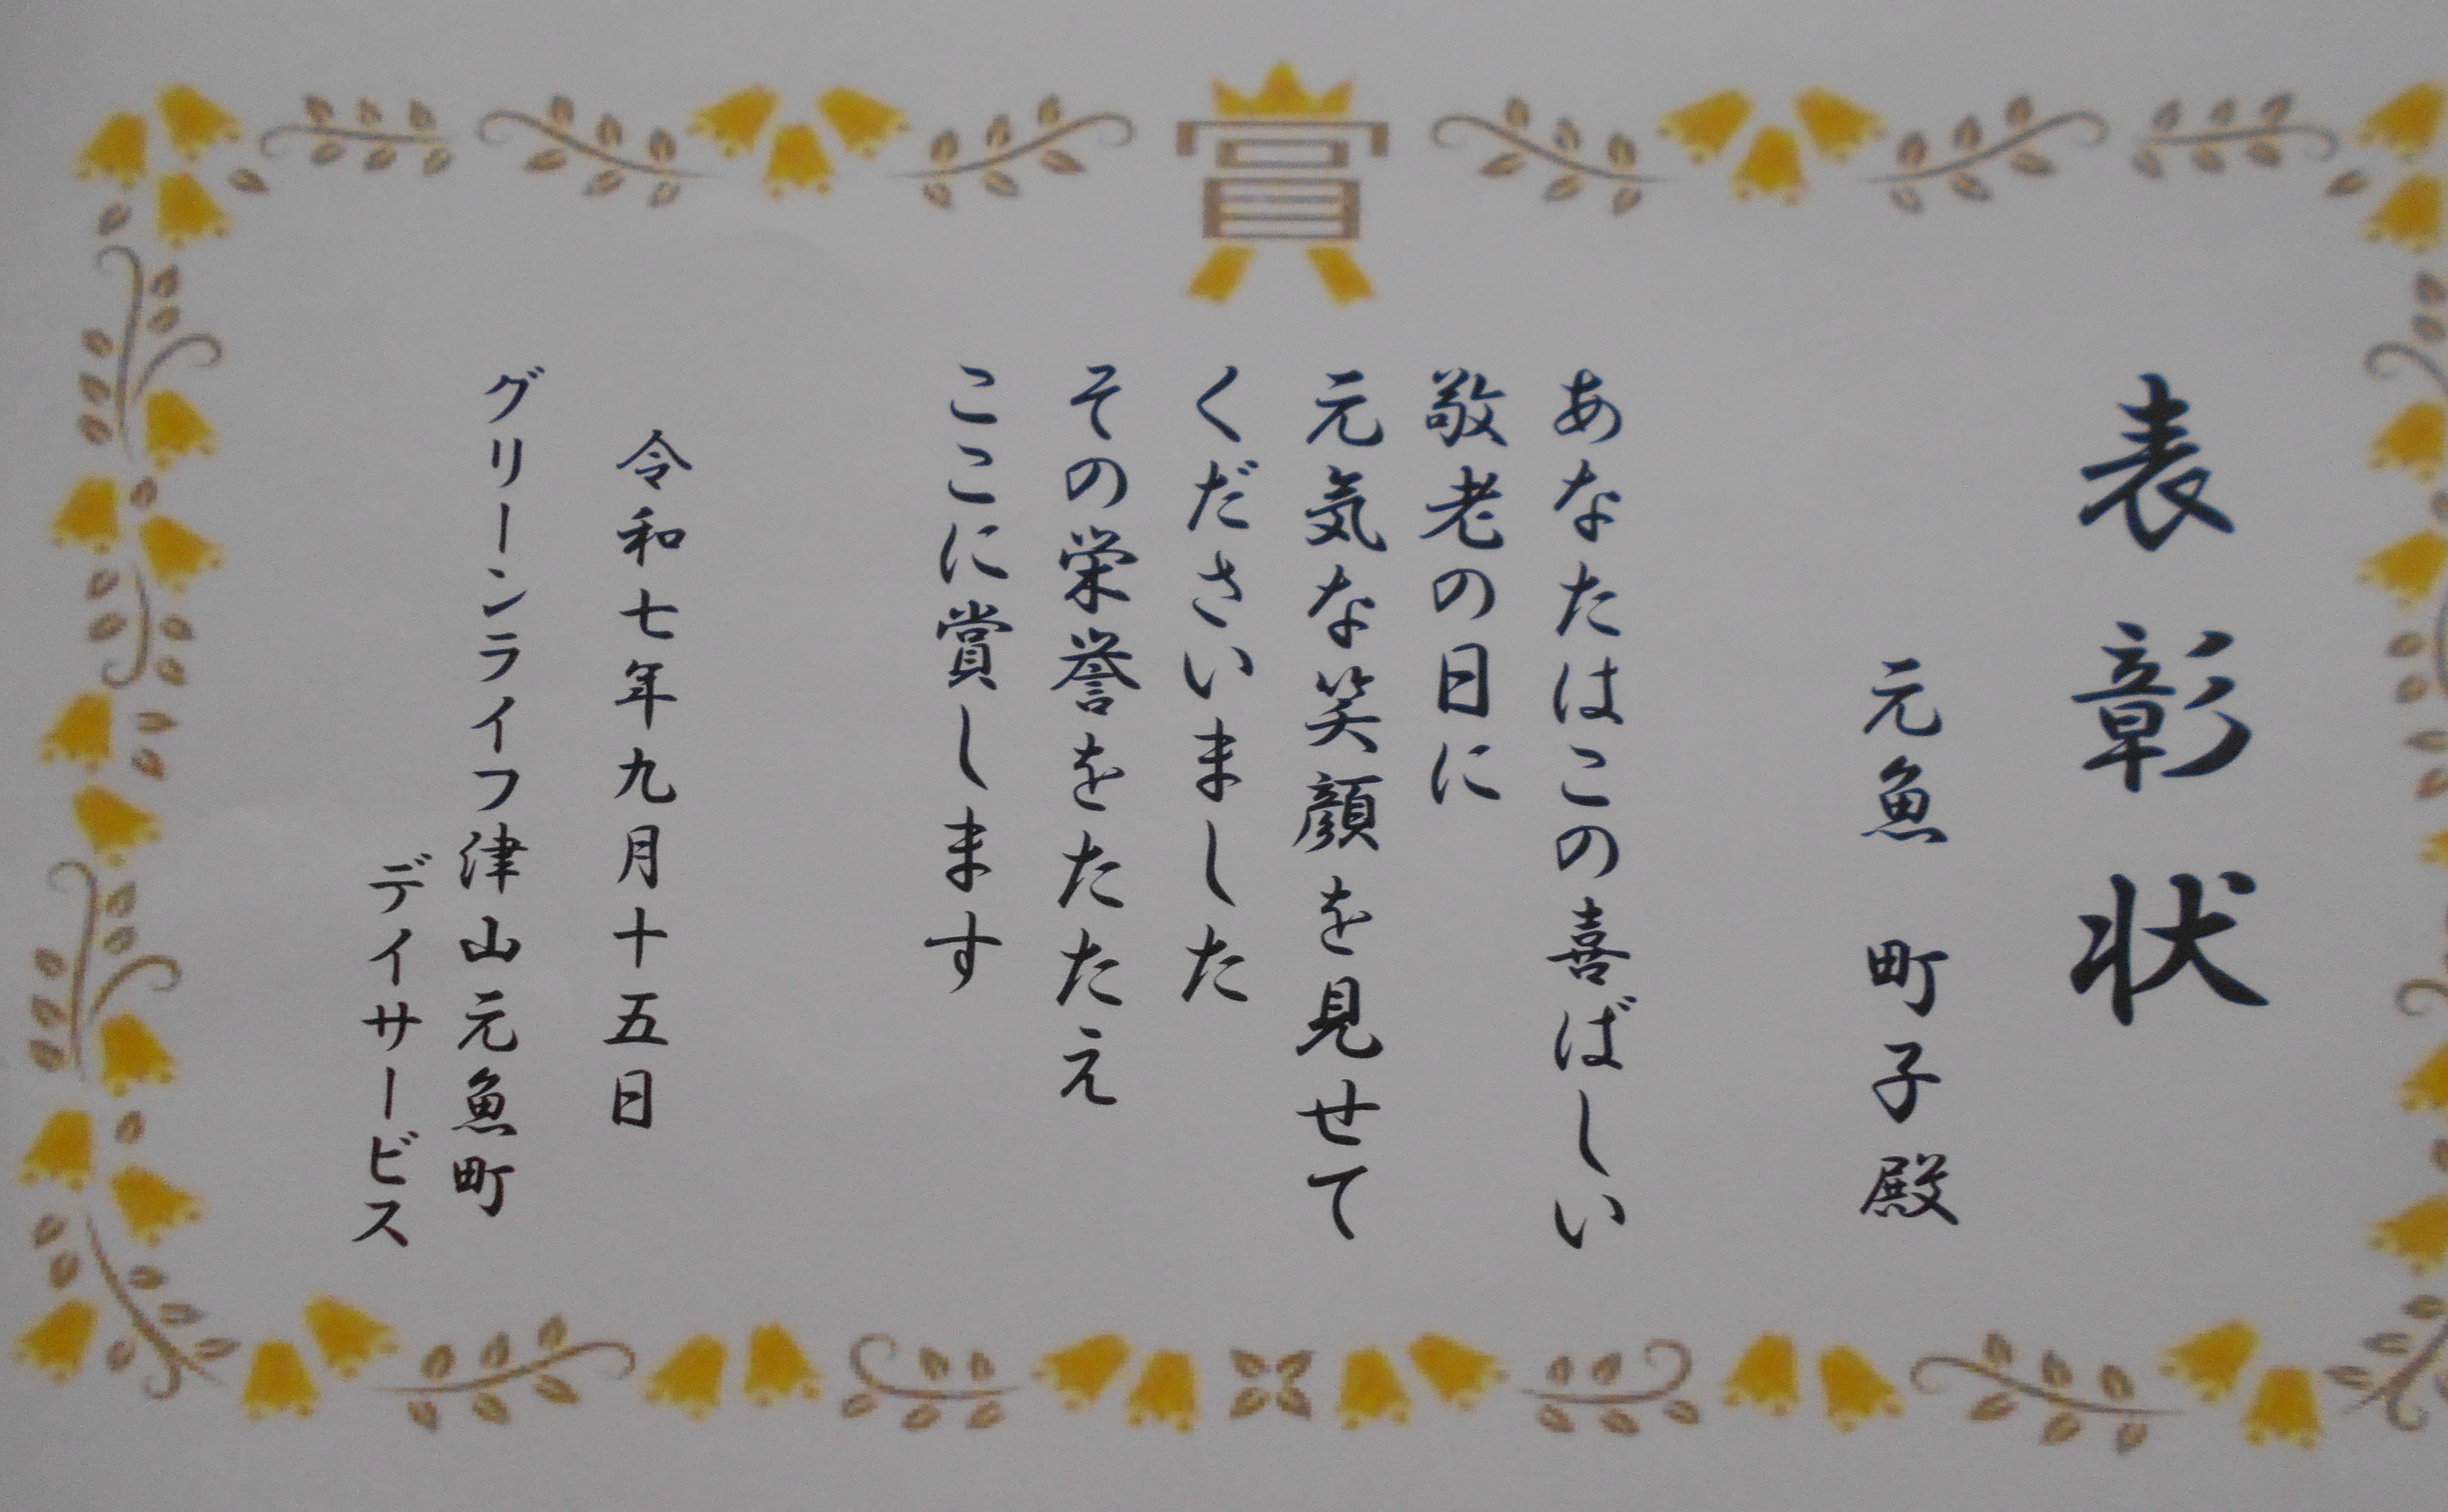 賞
表彰状
元魚 町子殿
あなたはこの喜ばしい
敬老の日に
元気な笑顔を見せて
くださいました
その栄誉をたたえ
ここに賞します
令和七年九月十五日
グリーンライフ津山元魚町
デイサービス